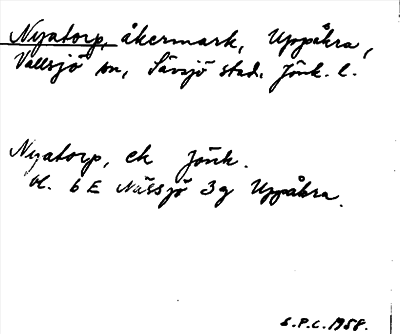 Nyatorp, åkermark, Uppåkra,
Vallsjö sn, Sävsjö stad. Jönk. l.
Nyatorp, ek Jönk.
bl. 6 E Nässjö 3g Uppåkra.
S.P.C. 1958.